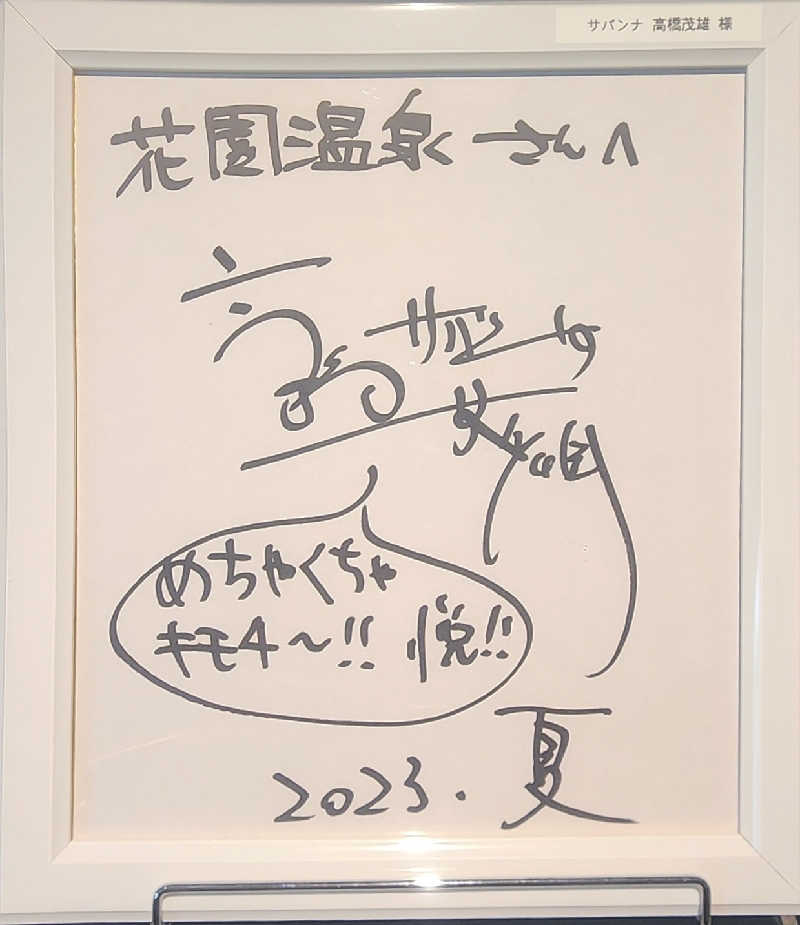 サバンナ 高橋茂雄 様
花園温泉さんへ
サバンナ
めちゃくちゃ
キモチ〜!! 悦!!
2023. 夏